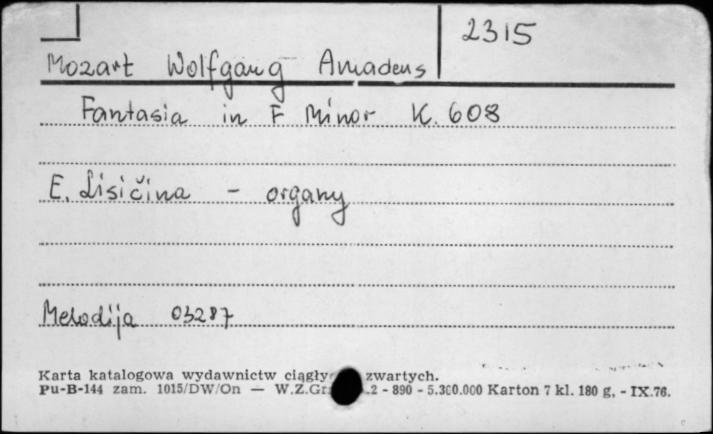 2315
Mozart Wolfgang Amadeus
Fantasia in F Minor K. 608
E. Lisičina - organy
Melodija 03287
Karta katalogowa wydawnictw ciągły zwartych.
Pu-B-144 zam. 1015/DW/On — W.Z.Gr. 2 - 890 - 5.300.000 Karton 7 kl. 180 g, - IX.76.